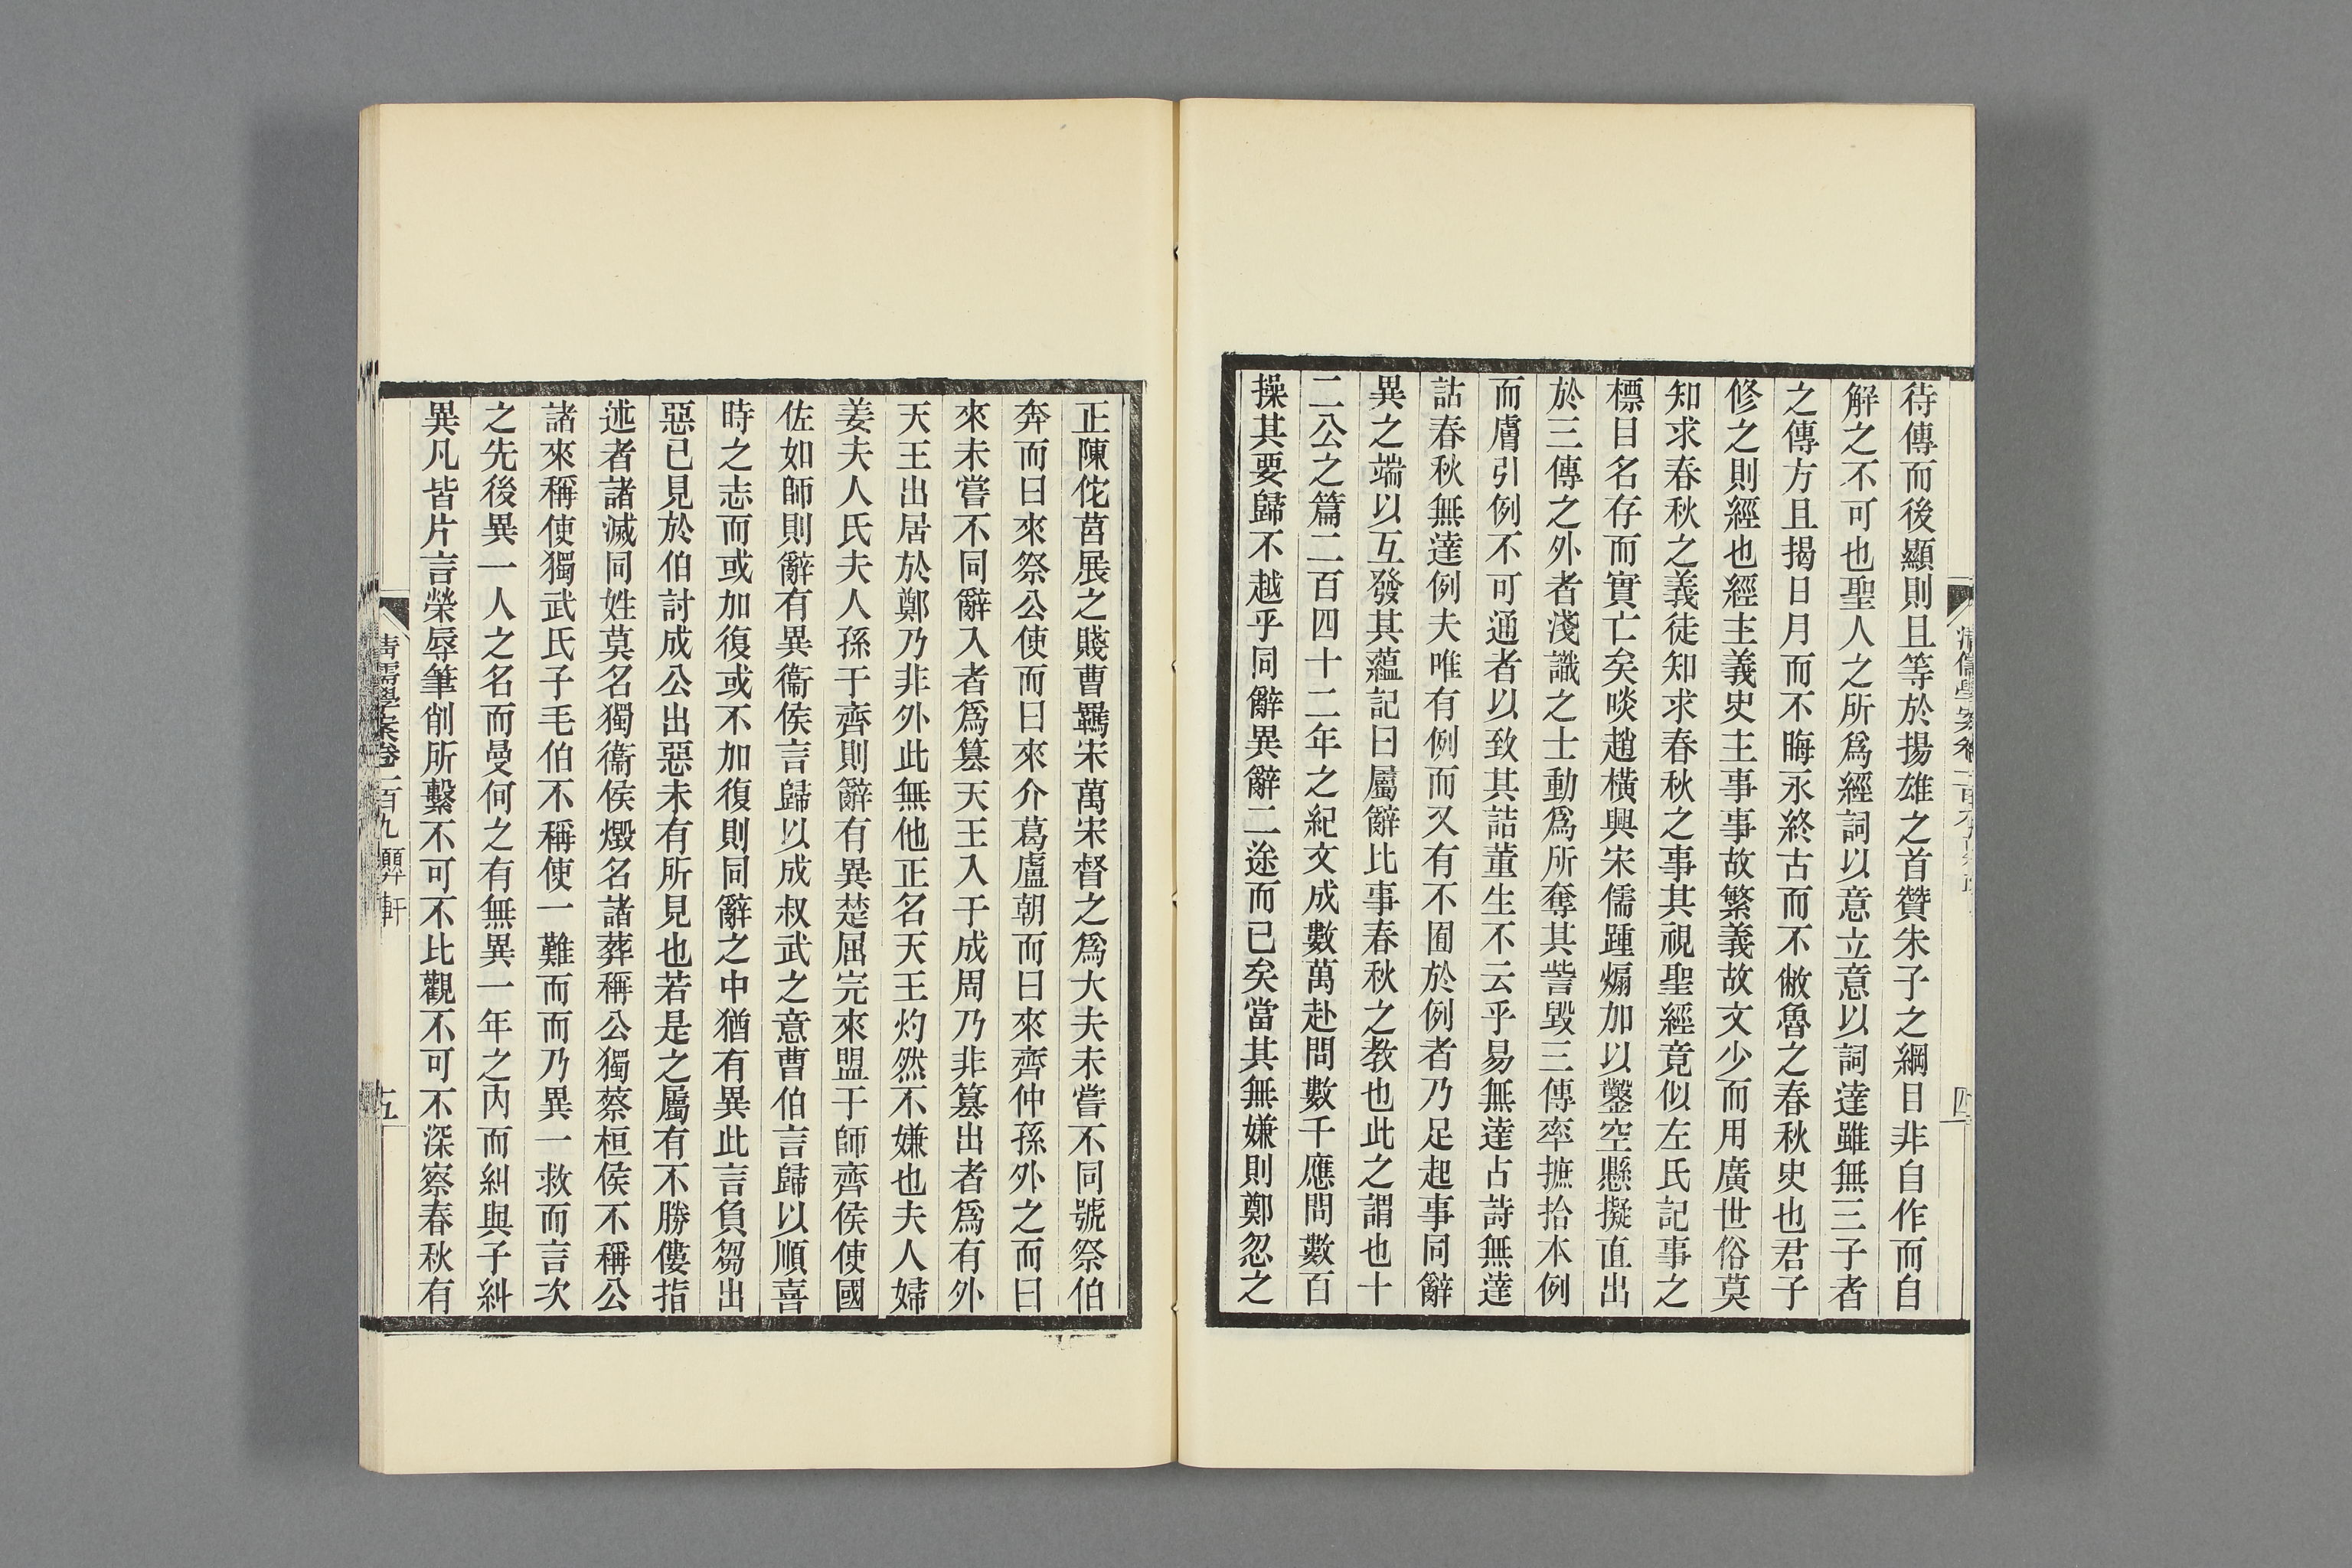 待傳而後顯則且等於揚雄之首贊朱子之綱目非自作而自
解之不可也聖人之所爲經詞以意立意以詞達雖無三子者
之傳方且揭日月而不晦永終古而不敝魯之春秋史也君子
修之則經也經主義史主事事故繁義故文少而用廣世俗莫
知求春秋之義徒知求春秋之事其視聖經竟似左氏記事之
標目名存而實亡矣啖趙橫興宋儒踵煽加以鑿空懸擬直出
於三傳之外者淺識之士動爲所奪其訾毀三傳率摭拾本例
而膚引例不可通者以致其詰董生不云乎易無達占詩無達
詁春秋無達例夫唯有例而又有不囿於例者乃足起事同辭
異之端以互發其蘊記曰屬辭比事春秋之教也此之謂也十
二公之篇二百四十二年之紀文成數萬赴問數千應問數百
操其要歸不越乎同辭異辭二途而已矣當其無嫌則鄭忽之
正陳佗莒展之賤曹羈宋萬宋督之爲大夫未嘗不同號祭伯
奔而曰來祭公使而曰來介葛盧朝而曰來齊仲孫外之而曰
來未嘗不同辭入者爲篡天王入于成周乃非篡出者爲有外
天王出居於鄭乃非外此無他正名天王灼然不嫌也夫人婦
姜夫人氏夫人孫于齊則辭有異楚屈完來盟于師齊侯使國
佐如師則辭有異衞侯言歸以成叔武之意曹伯言歸以順喜
時之志而或加復或不加復則同辭之中猶有異此言負芻出
惡已見於伯討成公出惡未有所見也若是之屬有不勝僂指
述者諸滅同姓莫名獨衞侯燬名諸葬稱公獨蔡桓侯不稱公
諸來稱使獨武氏子毛伯不稱使一難而而乃異一救而言次
之先後異一人之名而曼何之有無異一年之內而糾與子糾
異凡皆片言榮辱筆削所繫不可不比觀不可不深察春秋有
清儒學案卷一百九 顨軒
五
四